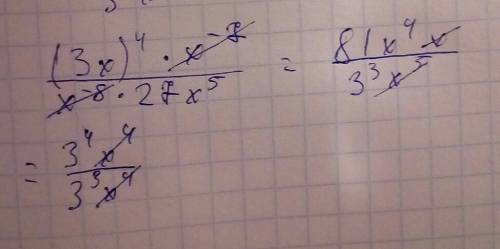 (3x)⁴ · x⁻⁷ / x⁻⁸ · 27x⁵ = 81x⁴x / 3³x⁵
= 3⁴x⁴ / 3³x⁴